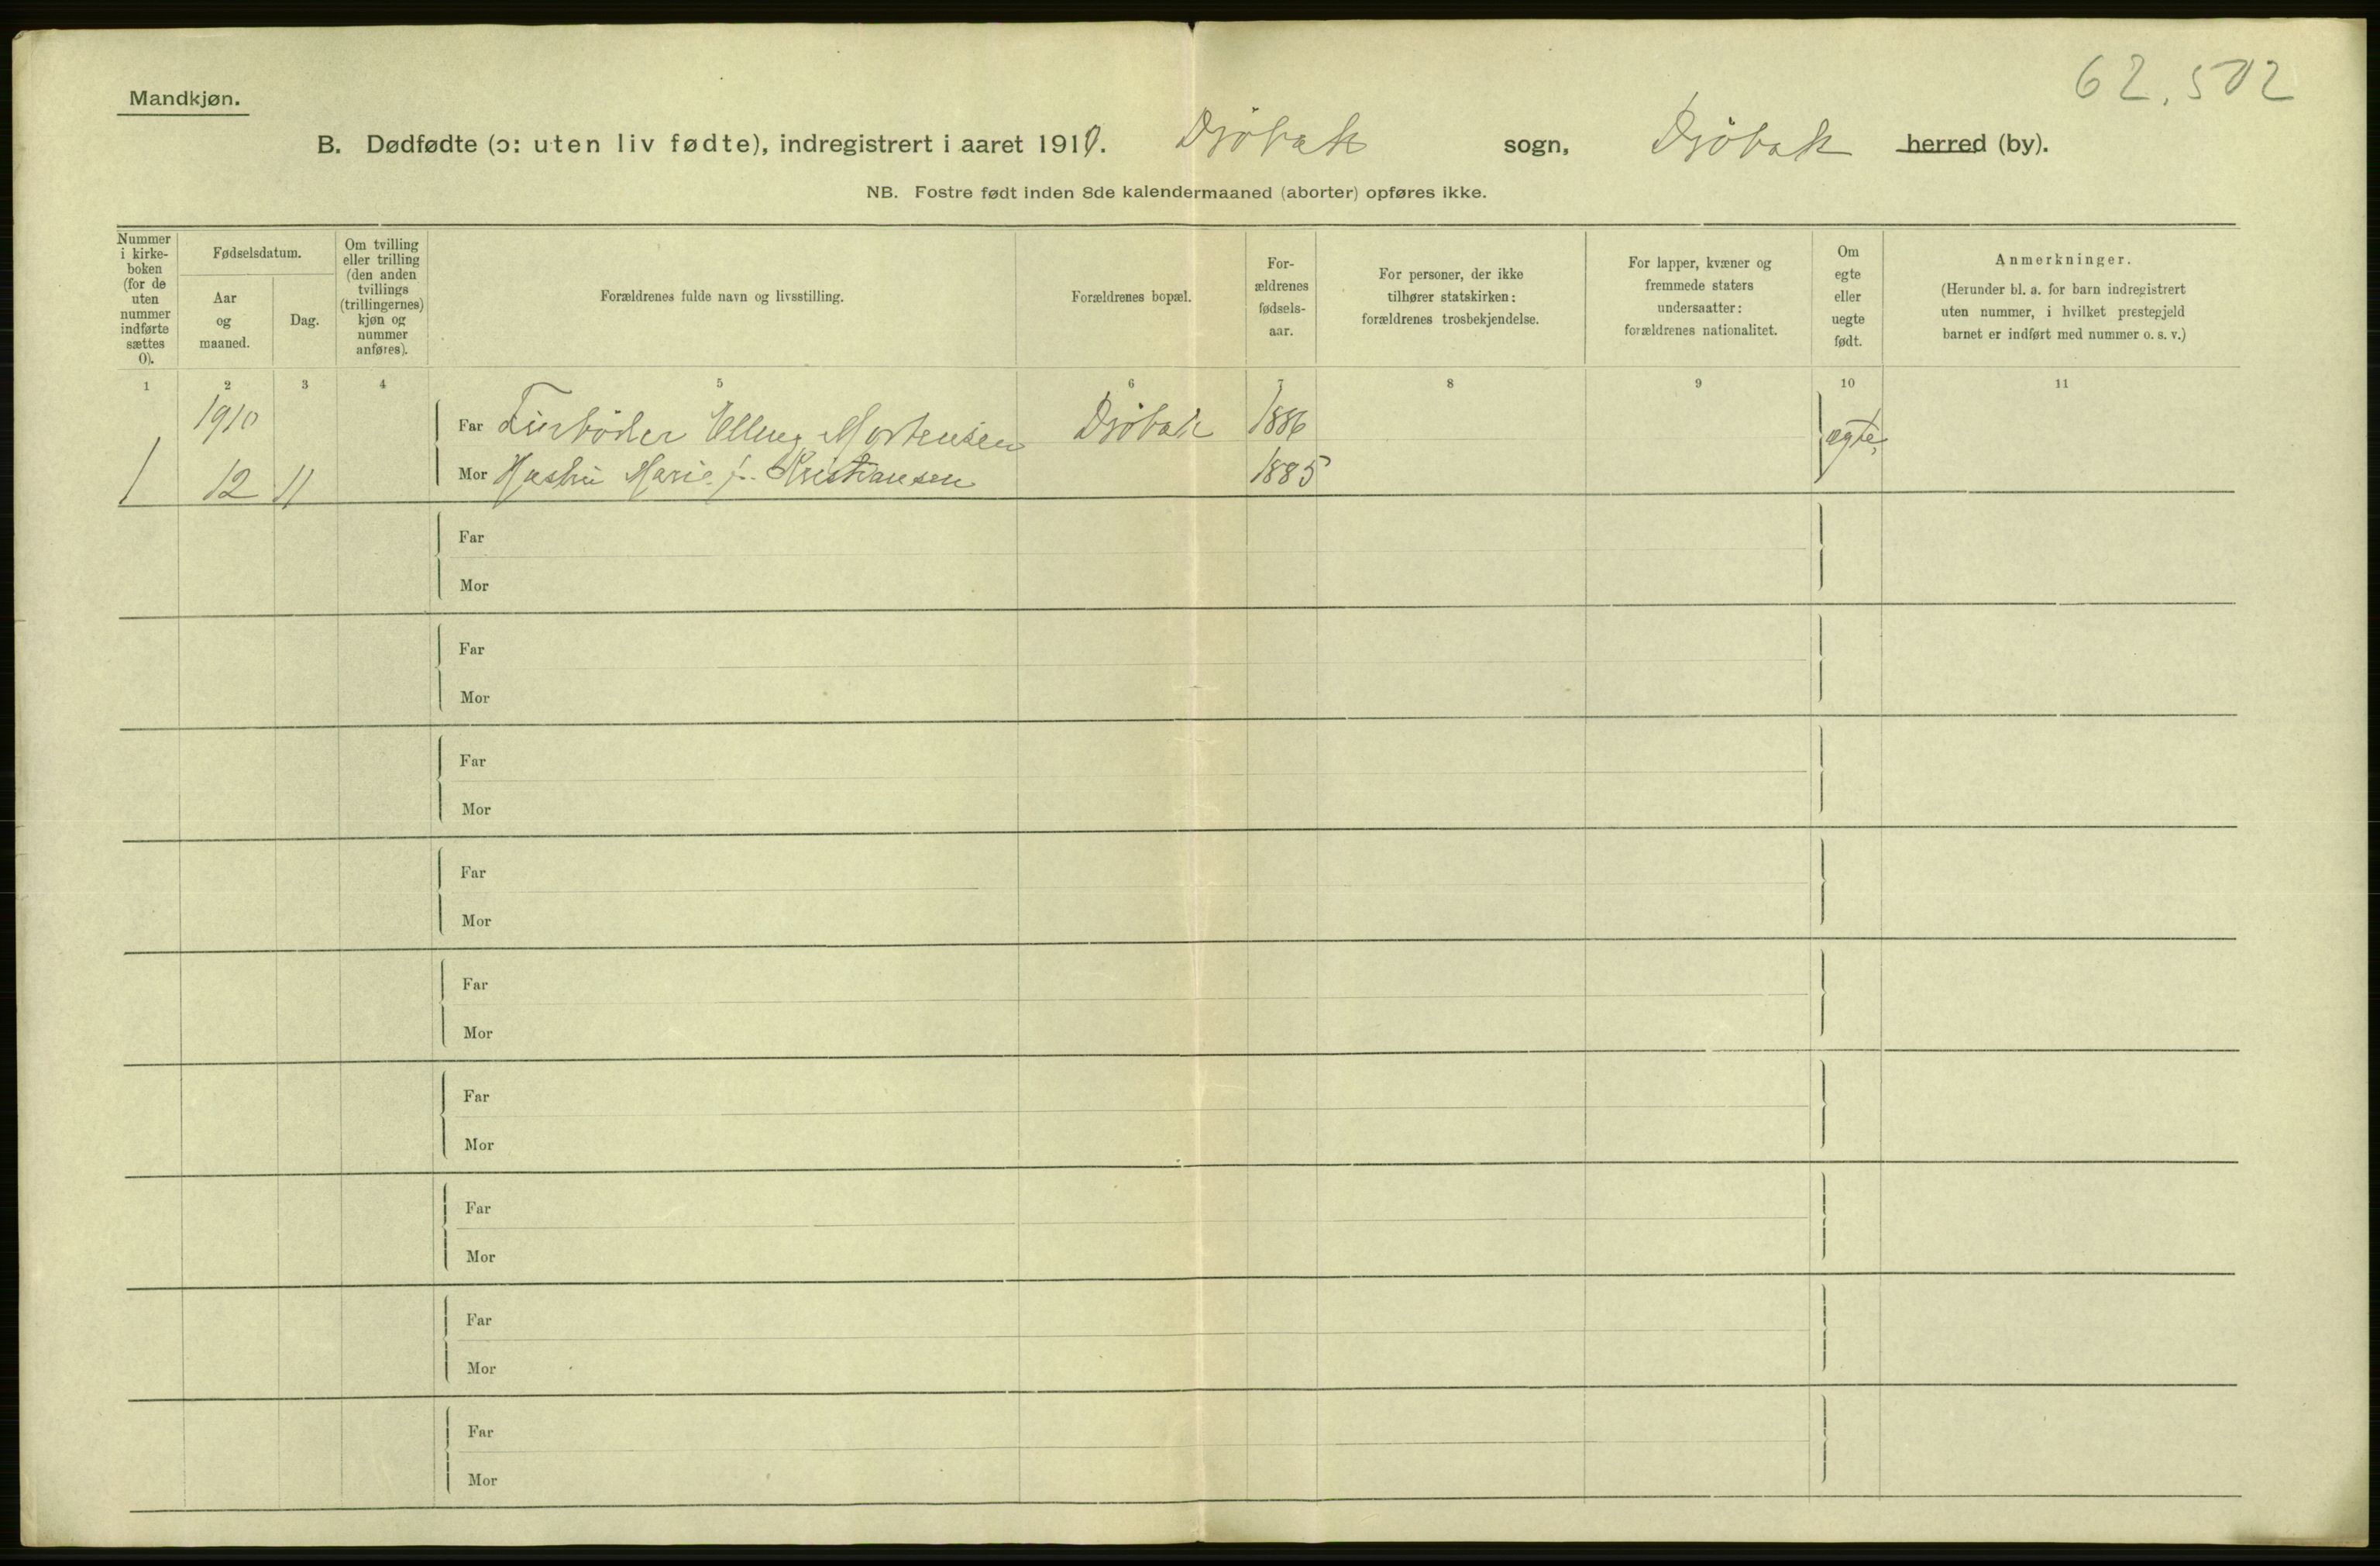 62.502
Mandkjøn.
B. Dødfødte (ɔ: uten liv fødte), indregistrert i aaret 1910. Drøbak sogn, Drøbak herred (by).
NB. Fostre født inden 8de kalendermaaned (aborter) opføres ikke.
Nummer i kirke-boken (for de uten nummer indførte sættes 0).
Fødselsdatum.
Aar og maaned.
Dag.
Om tvilling eller trilling (den anden tvillings (trillingernes) kjøn og nummer anføres).
Forældrenes fulde navn og livsstilling.
Forældrenes bopæl.
For-ældrenes fødsels-aar.
For personer, der ikke tilhører statskirken: forældrenes trosbekjendelse.
For lapper, kvæner og fremmede staters undersaatter: forældrenes nationalitet.
Om egte eller uegte født.
Anmerkninger.
(Herunder bl. a. for barn indregistrert uten nummer, i hvilket prestegjeld barnet er indført med nummer o. s. v.)
1 2 3 4 5 6 7 8 9 10 11
1910 Far Fyrbøder Elling Mortensen Drøbak 1886 ægte
1 12 11 Mor Hustru Marie f. Kristiansen 1885
Far
Mor
Far
Mor
Far
Mor
Far
Mor
Far
Mor
Far
Mor
Far
Mor
Far
Mor
Far
Mor